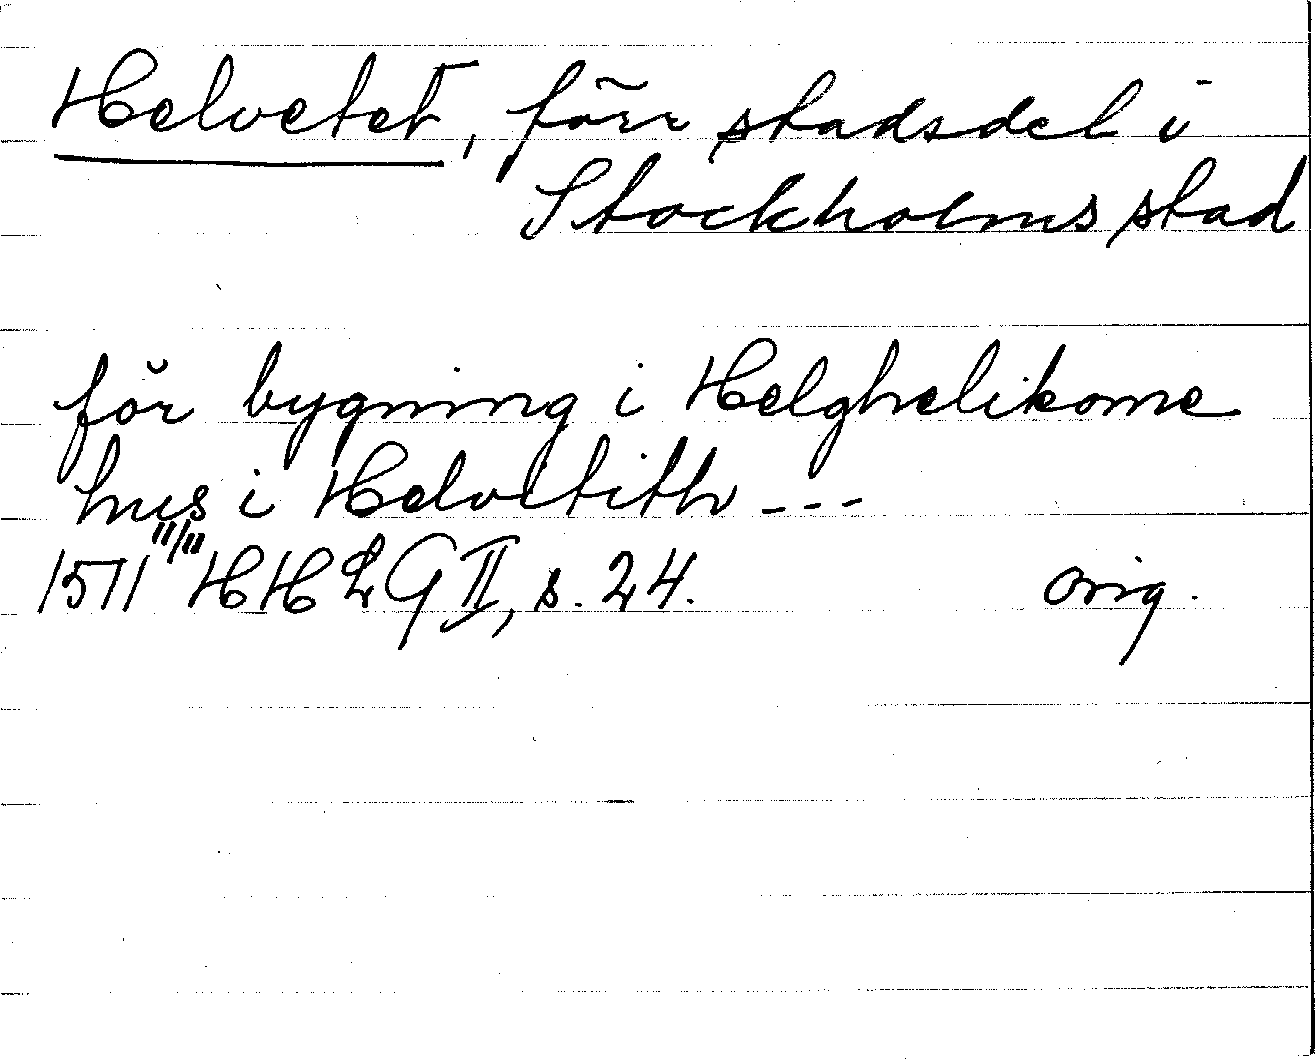 Helvetet, förr stadsdel i
Stockholms stad
för bygning i Helghelikome
hus i Helvitith ---
1511 11/11 HHLG II, s. 24. orig.